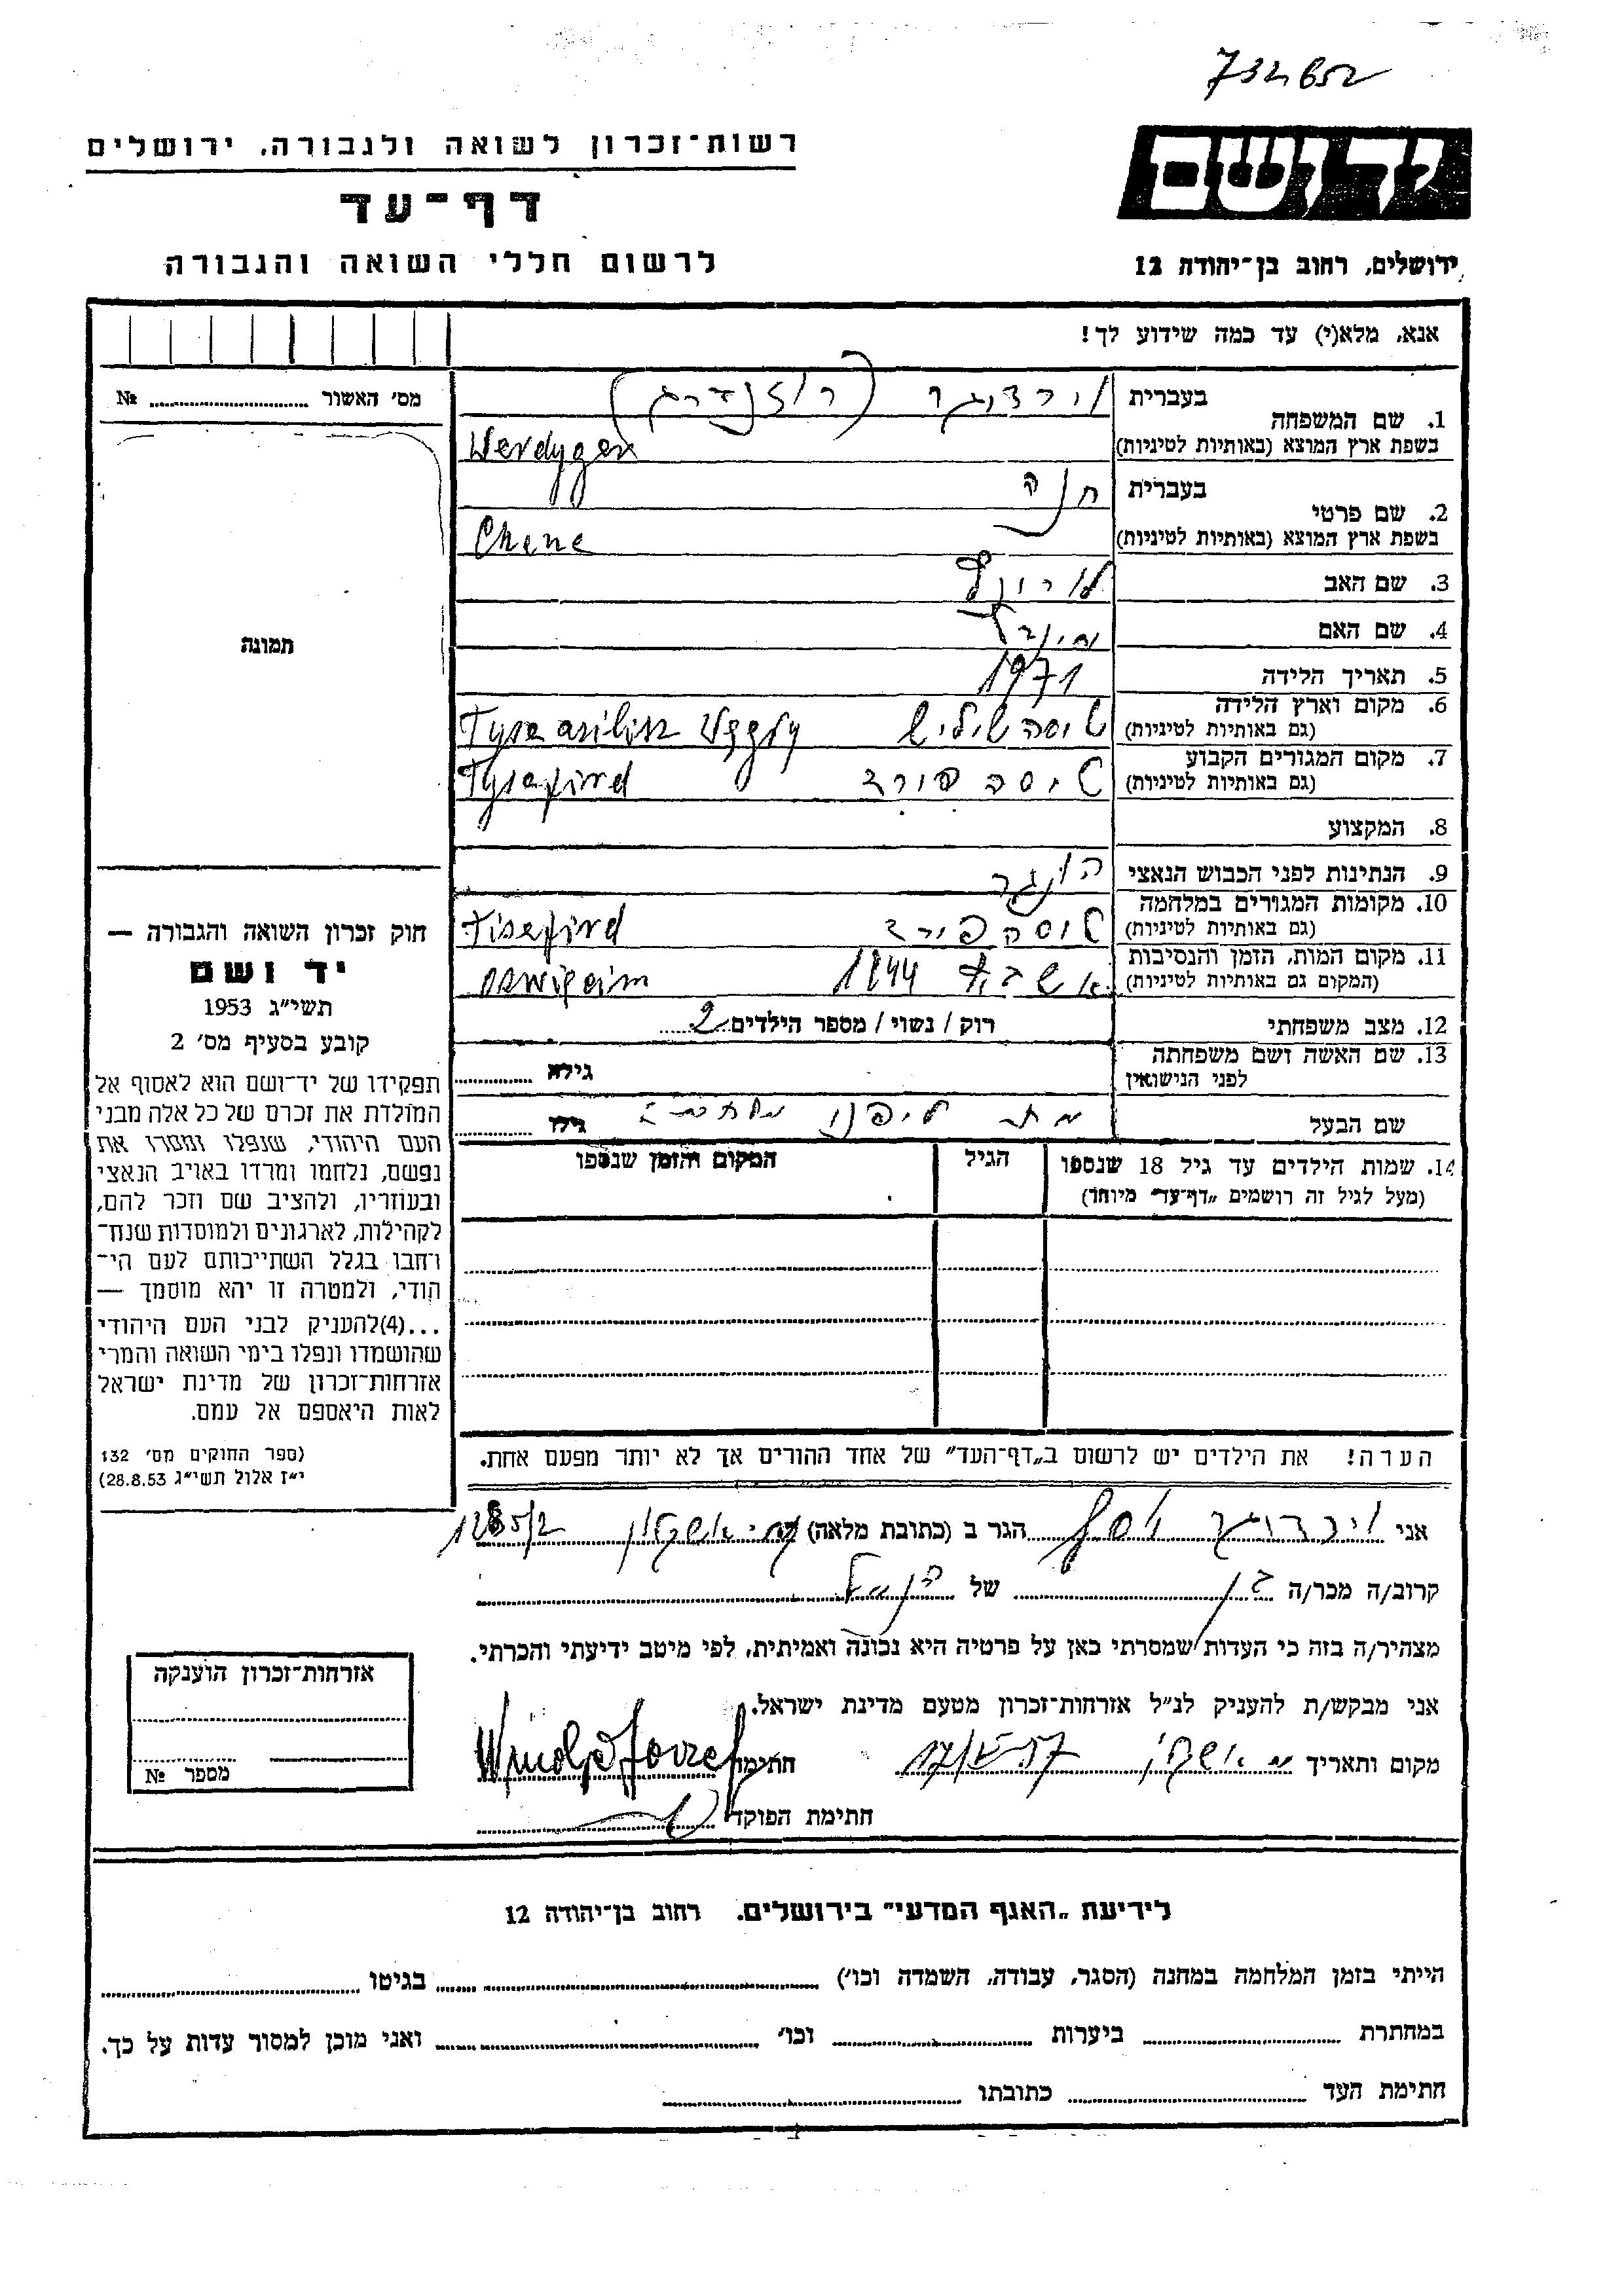 732652
רשות־זכרון לשואה ולגבורה, ירושלים
יד ושם
דף־עד
לרשום חללי השואה והגבורה
ירושלים, רחוב בן־יהודה 12
אנא, מלא(י) עד כמה שידוע לך!
מס׳ האשור № 
1. שם המשפחה
בעברית
וירדיגר
בשפת ארץ המוצא (באותיות לטיניות) Werdyger
2. שם פרטי
בעברית חנה
בשפת ארץ המוצא (באותיות לטיניות) Chene
3. שם האב
4. שם האם
5. תאריך הלידה 1971
6. מקום וארץ הלידה
(גם באותיות לטיניות)
7. מקום המגורים הקבוע
(גם באותיות לטיניות) טיסה פורד Tysafird
8. המקצוע
9. הנתינות לפני הכבוש הנאצי הונגר
10. מקומות המגורים במלחמה
(גם באותיות לטיניות) טיסה פירד Tisefird
11. מקום המות, הזמן והנסיבות
(המקום גם באותיות לטיניות) 1944
12. מצב משפחתי רוק / נשוי / מספר הילדים 2
13. שם האשה ושם משפחתה
לפני הנישואין גילה
שם הבעל מת ליפני גילו
14. שמות הילדים עד גיל 18 שנספו
(מעל לגיל זה רושמים „דף־עד״ מיוחד)
הגיל
המקום והזמן שנספו
הערה! את הילדים יש לרשום ב„דף־העד״ של אחד ההורים אך לא יותר מפעם אחת.
תמונה
חוק זכרון השואה והגבורה —
יד ושם
תשי״ג 1953
קובע בסעיף מס׳ 2
תפקידו של יד־ושם הוא לאסוף אל
המולדת את זכרם של כל אלה מבני
העם היהודי, שנפלו ומסרו את
נפשם, נלחמו ומרדו באויב הנאצי
ובעוזריו, ולהציב שם וזכר להם,
לקהילות, לארגונים ולמוסדות שנח־
רחבו בגלל השתייכותם לעם הי־
הודי, ולמטרה זו יהא מוסמך —
...(4)להעניק לבני העם היהודי
שהושמדו ונפלו בימי השואה והמרי
אזרחות־זכרון של מדינת ישראל
לאות היאספם אל עמם.
(ספר החוקים מס׳ 132
י״ז אלול תשי״ג 28.8.53)
אני וירדיגר יוסף הגר ב (כתובת מלאה) אשקלון
קרוב/ה מכר/ה בן של
מצהיר/ה בזה כי העדות שמסרתי כאן על פרטיה היא נכונה ואמיתית, לפי מיטב ידיעתי והכרתי.
אני מבקש/ת להעניק לנ״ל אזרחות־זכרון מטעם מדינת ישראל.
מקום ותאריך חתימה
חתימת הפוקד
אזרחות־זכרון הוענקה
מספר №
לידיעת „האגף המדעי״ בירושלים, רחוב בן־יהודה 12
הייתי בזמן המלחמה במחנה (הסגר, עבודה, השמדה וכו׳) בגיטו
במחתרת ביערות וכו׳ ואני מוכן למסור עדות על כך.
חתימת העד כתובתו